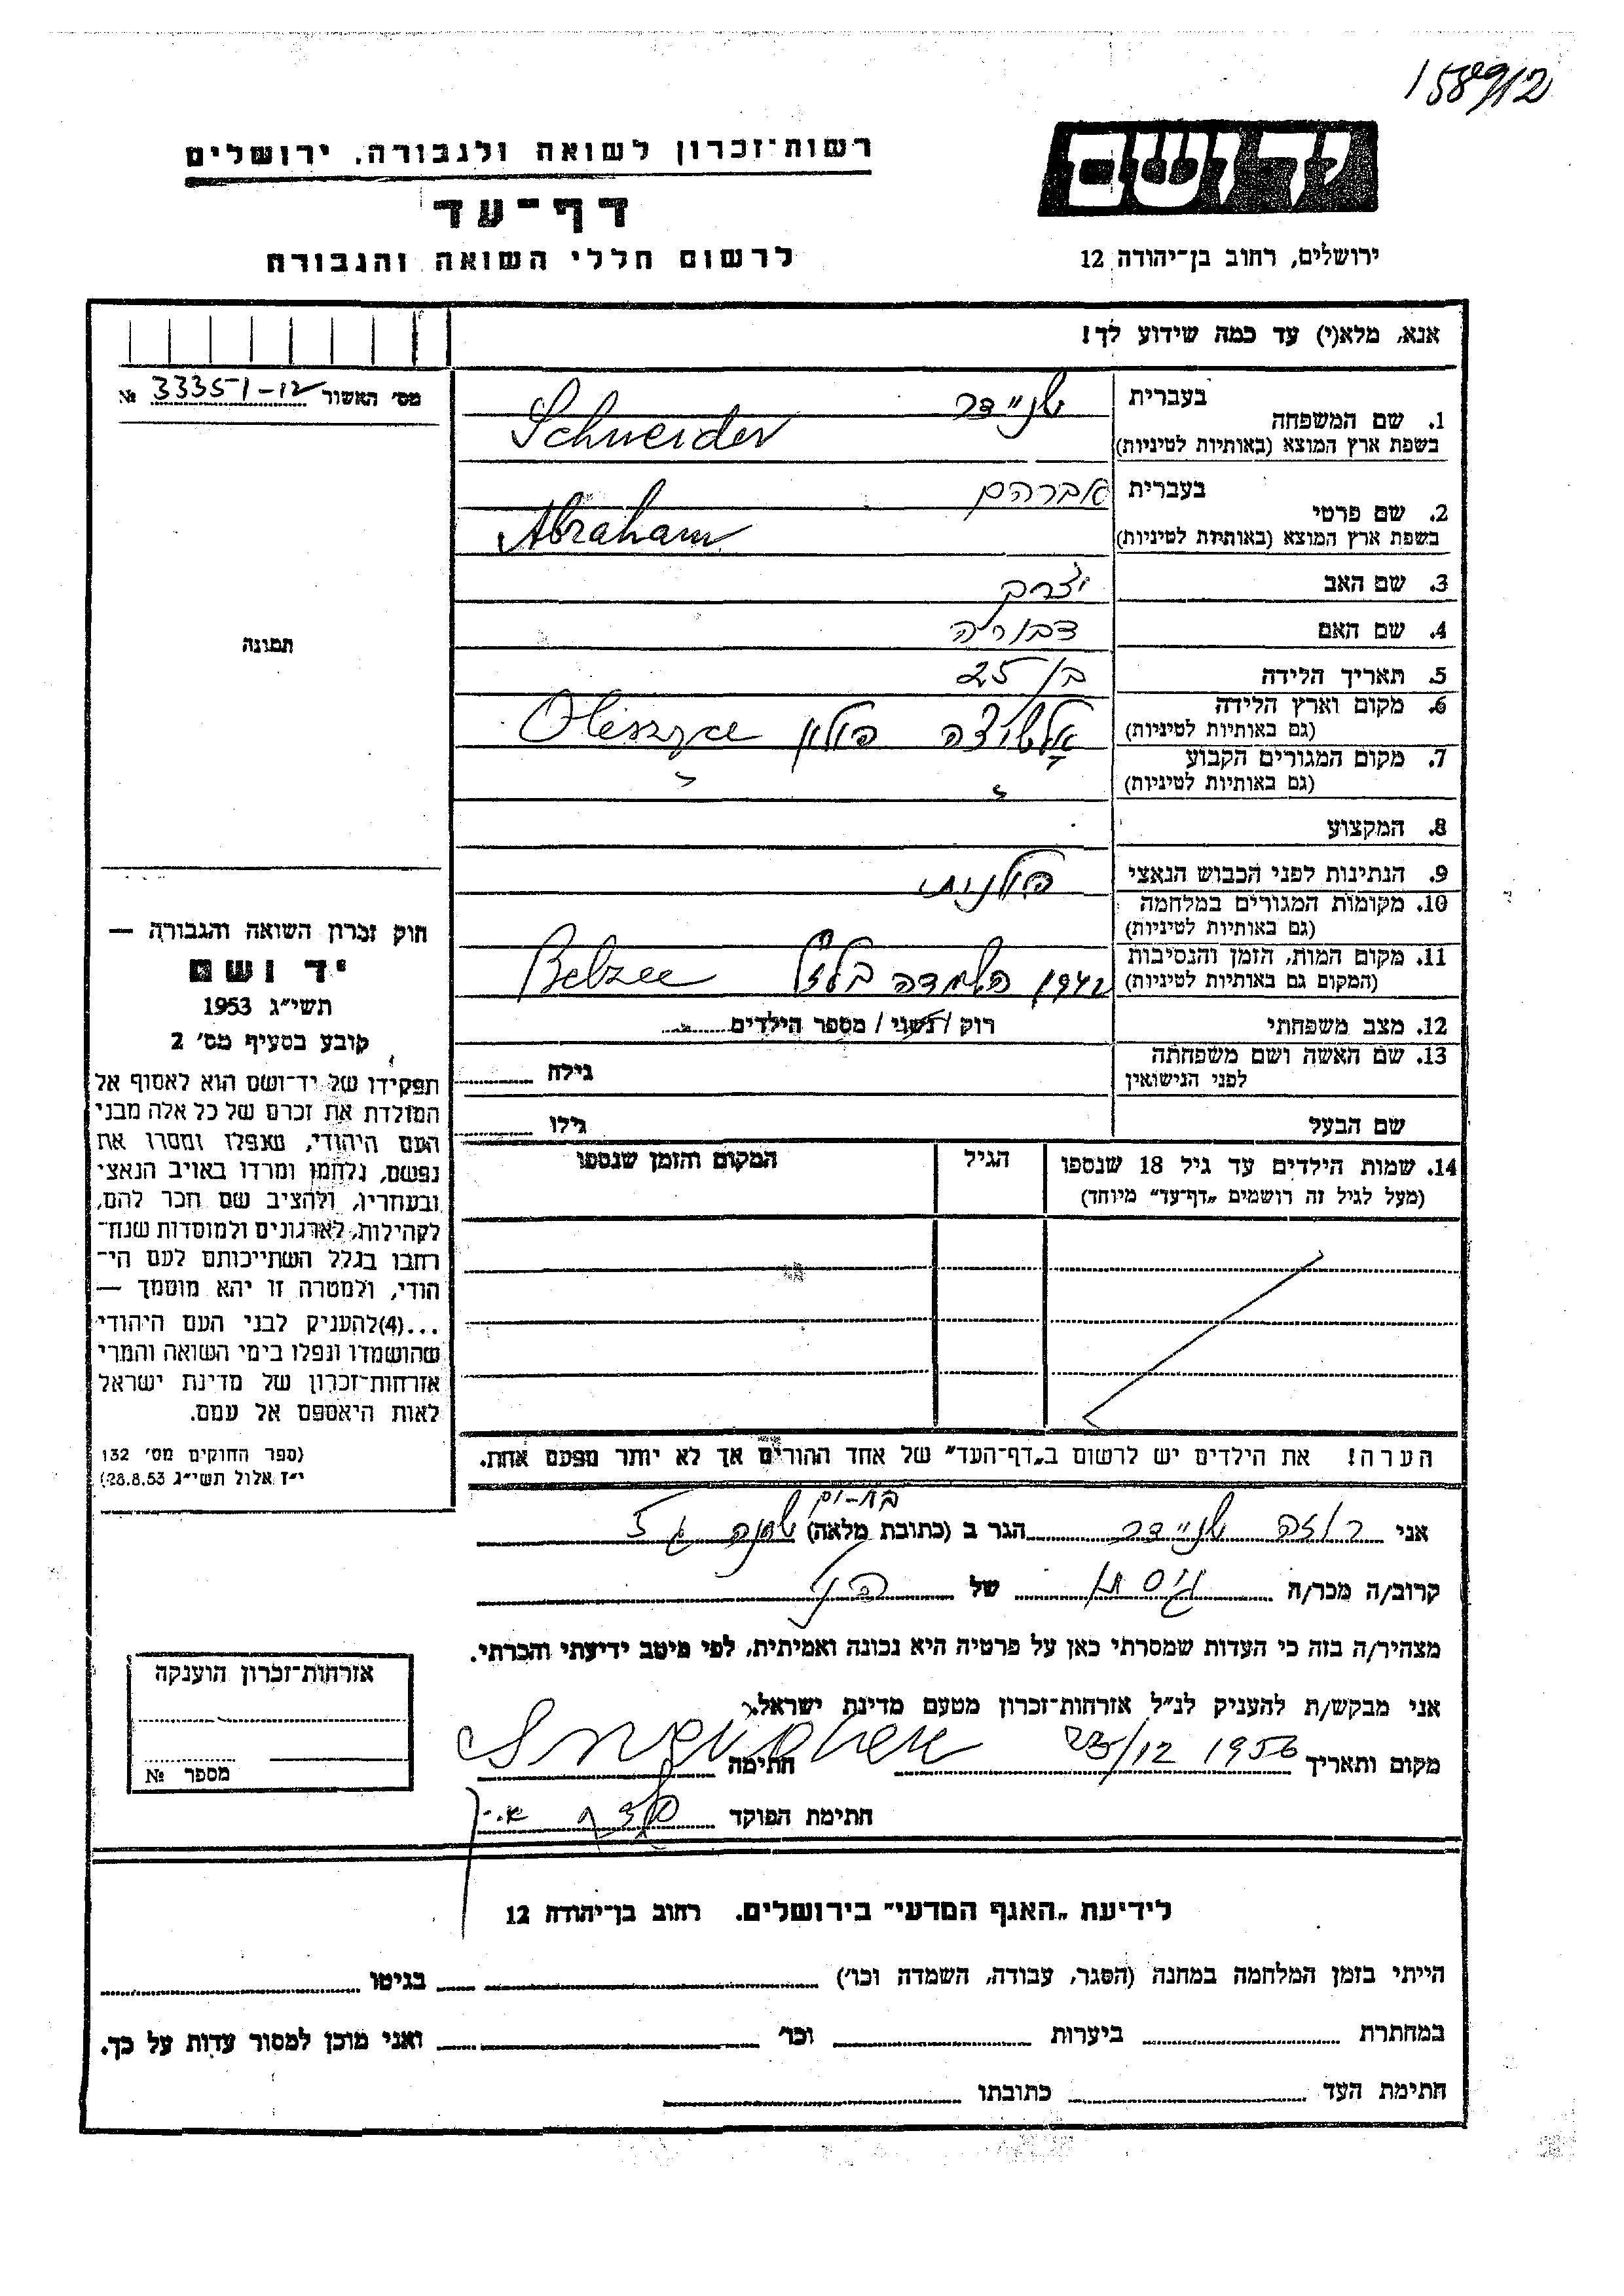 158912
רשות־זכרון לשואה ולגבורה, ירושלים
דף־עד
לרשום חללי השואה והגבורה
יד ושם
ירושלים, רחוב בן־יהודה 12
אנא, מלא(י) עד כמה שידוע לך!
מס׳ האשור 33351-12 №
תמונה
1. שם המשפחה
בעברית שניידר
בשפת ארץ המוצא (באותיות לטיניות) Schneider
2. שם פרטי
בעברית אברהם
בשפת ארץ המוצא (באותיות לטיניות) Abraham
3. שם האב יצחק
4. שם האם דבורה
5. תאריך הלידה בן 25
6. מקום וארץ הלידה
(גם באותיות לטיניות) פולין
7. מקום המגורים הקבוע
(גם באותיות לטיניות)
8. המקצוע
9. הנתינות לפני הכבוש הנאצי פולנית
10. מקומות המגורים במלחמה
(גם באותיות לטיניות)
11. מקום המות, הזמן והנסיבות
(המקום גם באותיות לטיניות) 1942 Belzec
12. מצב משפחתי רוק / נשוי / מספר הילדים
13. שם האשה ושם משפחתה
לפני הנישואין
גילה
שם הבעל
גילו
14. שמות הילדים עד גיל 18 שנספו
(מעל לגיל זה רושמים „דף־עד” מיוחד)
הגיל
המקום והזמן שנספו
הערה! את הילדים יש לרשום ב„דף־העד” של אחד ההורים אך לא יותר מפעם אחת.
חוק זכרון השואה והגבורה —
יד ושם
תשי״ג 1953
קובע בסעיף מס׳ 2
תפקידו של יד־ושם הוא לאסוף אל
המולדת את זכרם של כל אלה מבני
העם היהודי, שנפלו ומסרו את
נפשם, נלחמו ומרדו באויב הנאצי
ובעוזריו, ולהציב שם וזכר להם,
לקהילות, לארגונים ולמוסדות שנח־
רבו בגלל השתייכותם לעם הי־
הודי, ולמטרה זו יהא מוסמך —
...(4) להעניק לבני העם היהודי
שהושמדו ונפלו בימי השואה והמרי
אזרחות־זכרון של מדינת ישראל
לאות היאספם אל עמם.
(ספר החוקים מס׳ 132
י״ז אלול תשי״ג 28.8.53)
בת-ים
אני רוזה שניידר הגר ב (כתובת מלאה)
קרוב/ה מכר/ה גיסתו של הנ״ל
מצהיר/ה בזה כי העדות שמסרתי כאן על פרטיה היא נכונה ואמיתית, לפי מיטב ידיעתי והכרתי.
אני מבקש/ת להעניק לנ״ל אזרחות־זכרון מטעם מדינת ישראל.
מקום ותאריך 23/12 1956 חתימה
חתימת הפוקד
אזרחות־זכרון הוענקה
מספר №
לידיעת „האגף המדעי” בירושלים, רחוב בן־יהודה 12
הייתי בזמן המלחמה במחנה (הסגר, עבודה, השמדה וכו׳) בגיטו
במחתרת ביערות וכו׳ ואני מוכן למסור עדות על כך.
חתימת העד כתובתו